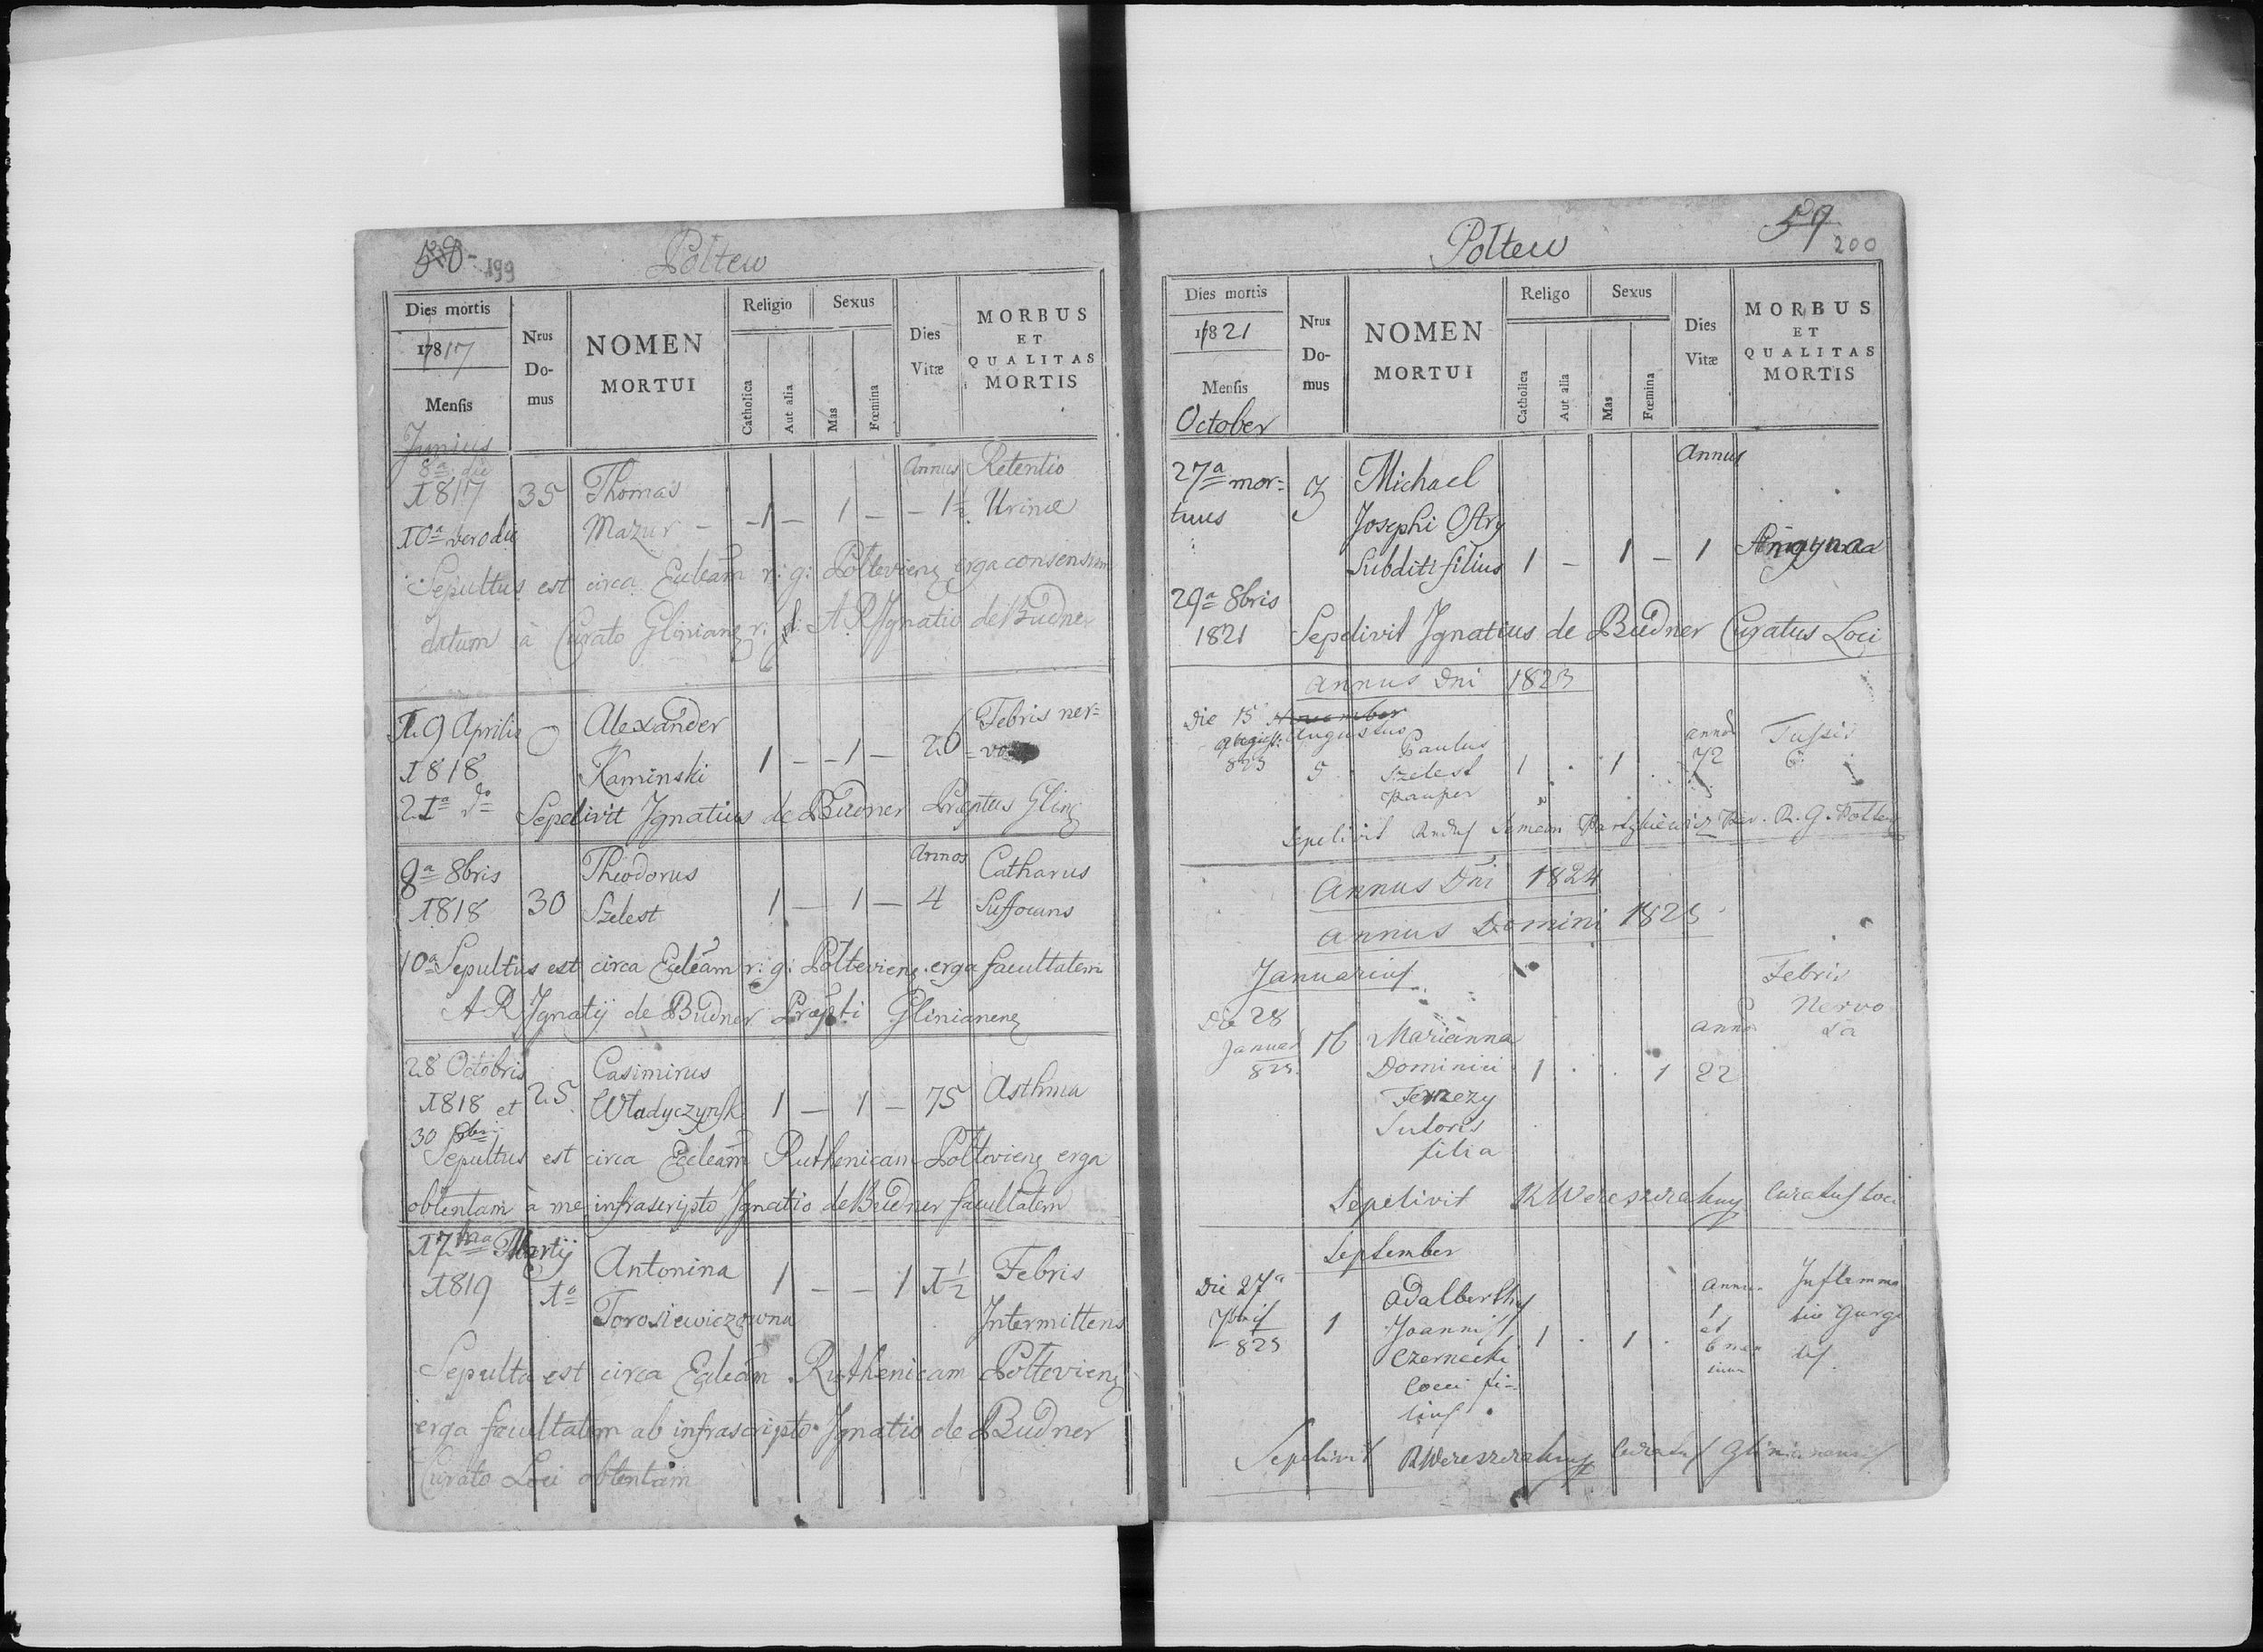 58 199
Poltew
Dies mortis
1817
Mensis
Junius
Nrus
Do-
mus
NOMEN
MORTUI
Religio
Catholica
Aut alia
Sexus
Mas
Fœmina
Dies
Vitæ
MORBUS
ET
QUALITAS
MORTIS
8a die Annus Retentio
1817 35 Thomas
10a vero die Mazur - - 1 - 1 - - 1½ Urinæ
Sepultus est circa Ecleam r: g: Polteviens erga consensum
datum à Curato Glinians r: l: A R Ignatio de Budner
19 Aprilis 0 Alexander Febris ner=
1818 Kaminski 1 - - 1 - 26 =vo
21a do Sepelivit Ignatius de Budner Præptus Glins
9a 8bris Theodorus Annos Catharus
1818 30 Szelest 1 - 1 - 4 Suffocans
10a Sepultus est circa Ecleam r: g: Polteviens erga facultatem
A R Ignatij de Budner Præpti Glinianens
28 Octobris Casimirus
1818 et 25 Wladyczynsk 1 - 1 - 75 Asthma
30 8bris
Sepultus est circa Ecleam Ruthenicam Polteviens erga
obtentam à me infrascripto Ignatio de Budner facultatem
17ma Martij Antonina 1 - - 1 1½ Febris
1819 1o Torosiewiczowna Intermittens
Sepulta est circa Ecleam Ruthenicam Polteviens
erga facultatem ab infrascripto Ignatio de Budner
Curato Loci obtentam
59
200
Poltew
Dies mortis
1821
Mensis
October
Nrus
Do-
mus
NOMEN
MORTUI
Religo
Catholica
Aut alia
Sexus
Mas
Fœmina
Dies
Vitæ
MORBUS
ET
QUALITAS
MORTIS
27a mor= Michael Annus
tuus Josephi Ostry
Subditi filius 1 - 1 - 1 Angyna
29a 8bris
1821 Sepelivit Ignatius de Budner Curatus Loci
Annus Dni 1823
Die 15 November
Augustus
Paulus annos Tussis
823 5 Szelest 1 . 1 . 72
pauper
Sepelivit Semeon R. G.
Annus Dni 1824
Annus Domini 1825
Januarius Febris
Die 28 Nervo
Januar 16 Marianna anno sa
825 Dominici 1 . . 1 22
Sutoris
filia
Sepelivit Curatus Loci
September
Die 27a Adalberthus annu Inflamma
7bris 1 Joannis 1 . 1 . 1 tio Gurge
825 Czernecki et 6 men tis
cocci fi-
lius
Sepelivit Curatus Glinianensis